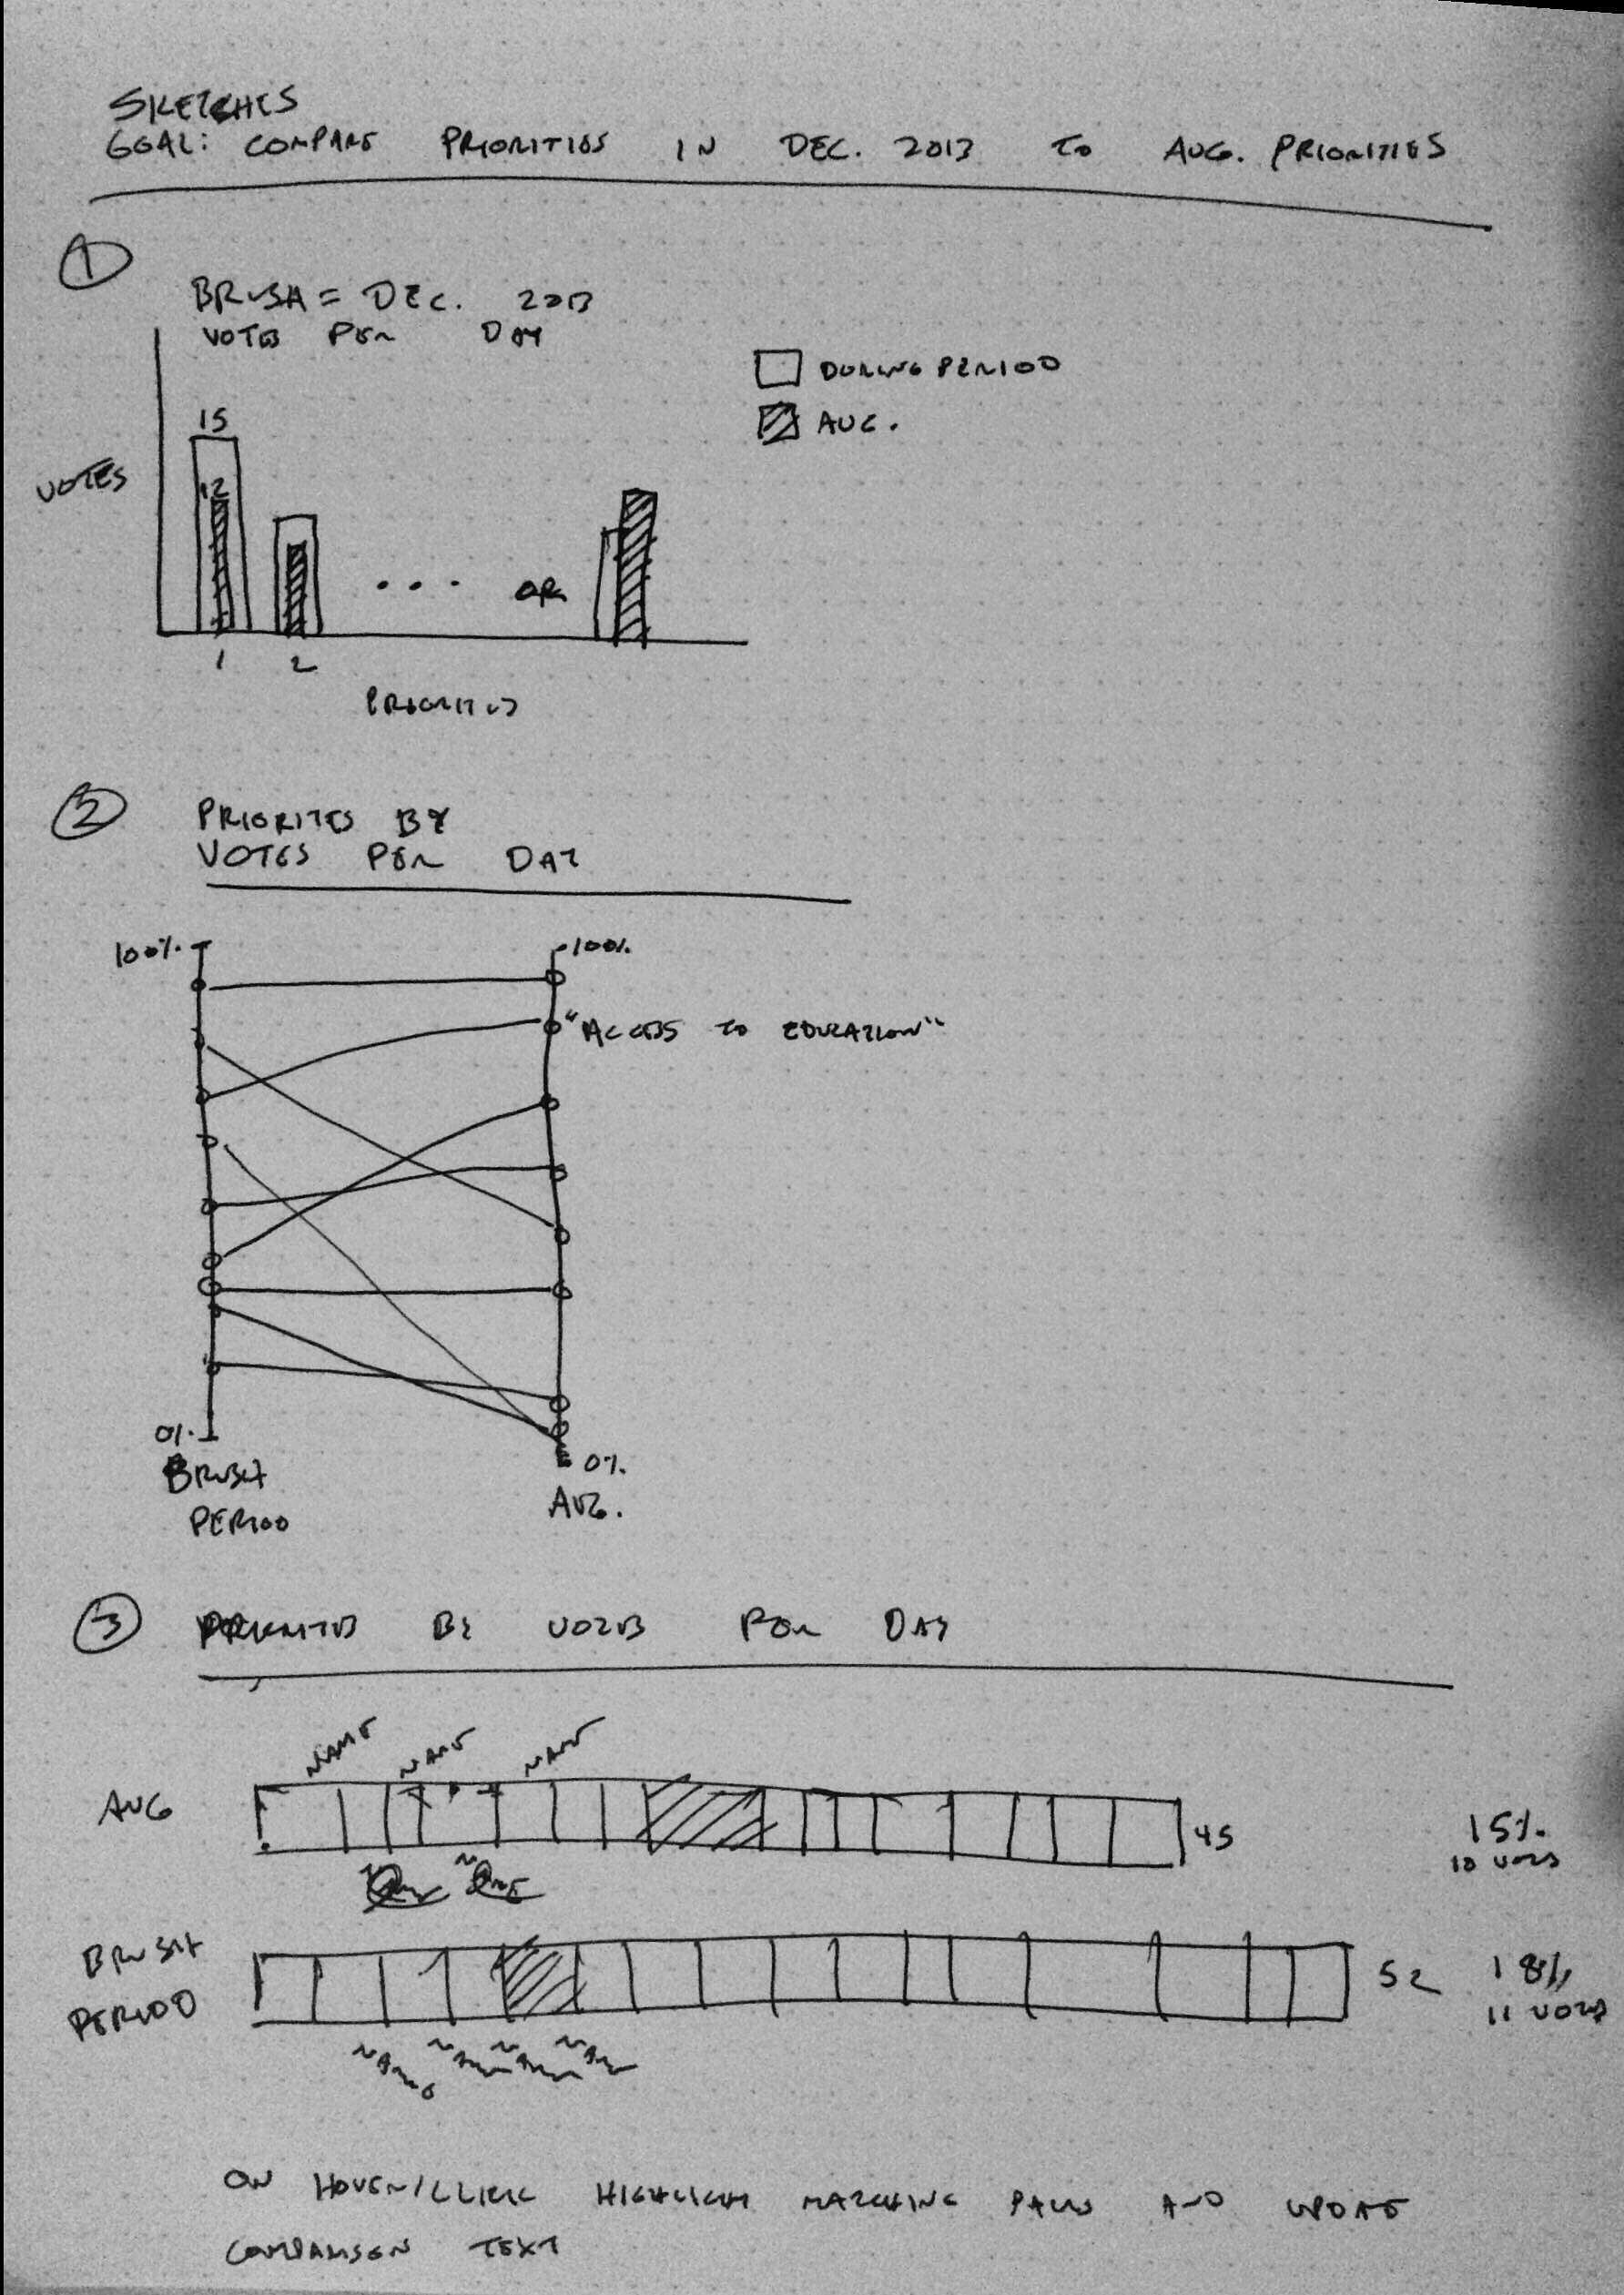 SKETCHES
GOAL: COMPARE PRIORITIES IN DEC. 2013 TO AUG. PRIORITIES
1
BRUSH = DEC. 2013
VOTES PER DAY
DURING PERIOD
AVG.
15
VOTES
12
... OR
1 2
PRIORITIES
2 PRIORITES BY
VOTES PER DAY
100% 100%
"ACCESS TO EDUCATION"
0% 0%
BRUSH
PERIOD
AVG.
3 PRIORITIES BY VOTES PER DAY
NAME NAME NAME
AVG 45 15%
10 VOTES
NAME
BRUSH
PERIOD 52 18%
11 VOTES
NAME NAME NAME NAME
ON HOVER/CLICK HIGHLIGHT MATCHING PAIRS AND UPDATE
COMPARISON TEXT